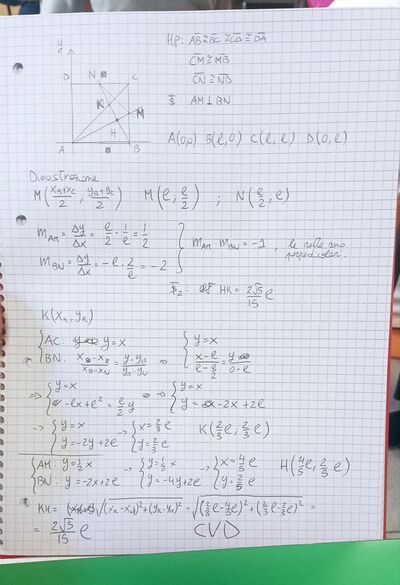 y
D N C
K
M
H
A B
HP: AB≅BC≅CD≅DA
CM≅MB
CN≅ND
AM⊥BN
A(0,0) B(l,0) C(l,l) D(0,l)
Dimostrazione
M((xB+xC)/2, (yB+yC)/2) M(l; l/2) ; N(l/2, l)
mAM = Δy/Δx = l/2 · 1/l = 1/2
mBN = Δy/Δx = -l · 2/l = -2
} mAM · mBN = -1, le rette sono perpendicolari.
HK = 2√5/15 l
K(xK, yK)
{ AC: y=x
BN: (xB-x)/(xB-xN) = (y-yB)/(yB-yN) ⇒ { y=x
(x-l)/(l-l/2) = y/(0-l)
⇒ { y=x
-lx+l² = l/2 y ⇒ { y=x
y= -2x+2l
→ { y=x
y=-2y+2l → { x=2/3 l
y=2/3 l K(2/3 l, 2/3 l)
{ AM: y=1/2 x
BN: y=-2x+2l → { y=1/2 x
y=-4y+2l → { x=4/5 l
y=2/5 l H(4/5 l, 2/5 l)
KH = √((xK-xH)²+(yK-yH)²) = √((2/3 l-4/5 l)²+(2/3 l-2/5 l)²) =
= 2√5/15 l CVD